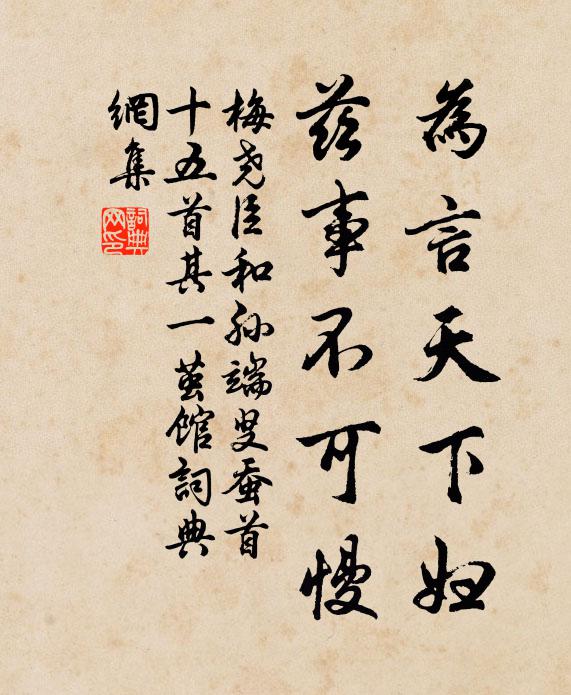 為言天下妇
茲事不可慢
梅尧臣和孙端叟蚕首
十五首其一茧馆詞典
網集
詞典
网印